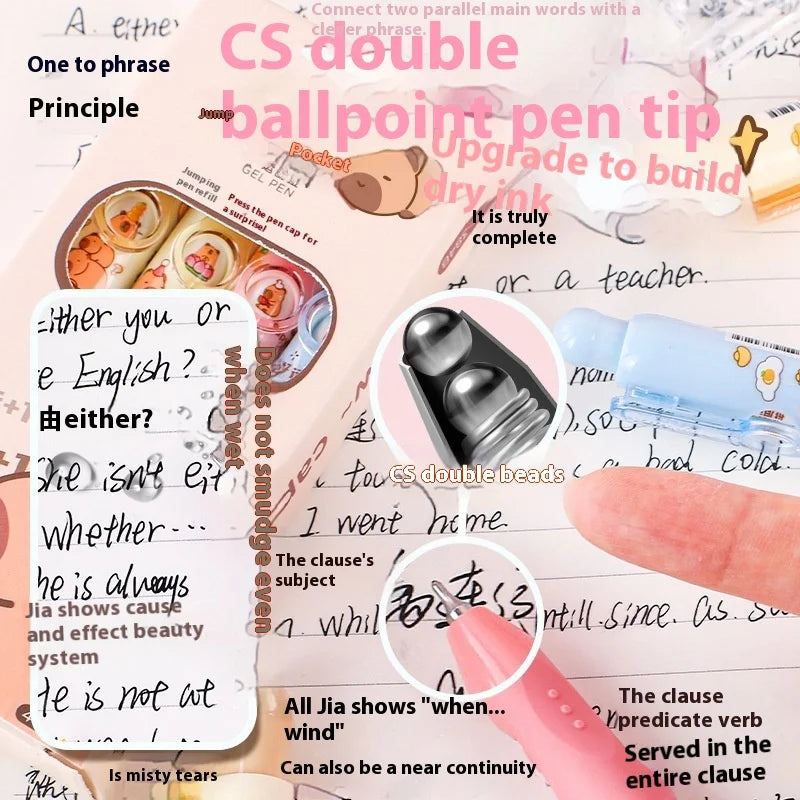 Connect two parallel main words with a
clever phrase.
A. either
CS double
ballpoint pen tip
One to phrase
Principle
Jump
Pocket
Upgrade to build
dry ink
GEL PEN
Jumping
pen refill
Press the pen cap for
a surprise!
It is truly
complete
or. a teacher.
either you or
e English?
由either?
She isn't eit
whether...
he is always
Jia shows cause
and effect beauty
system
He is not at
Does not smudge even
when wet
CS double beads
a bad cold.
I went home.
The clause's
subject
while
until.since.as.
All Jia shows "when...
wind"
Can also be a near continuity
Is misty tears
The clause
predicate verb
Served in the
entire clause